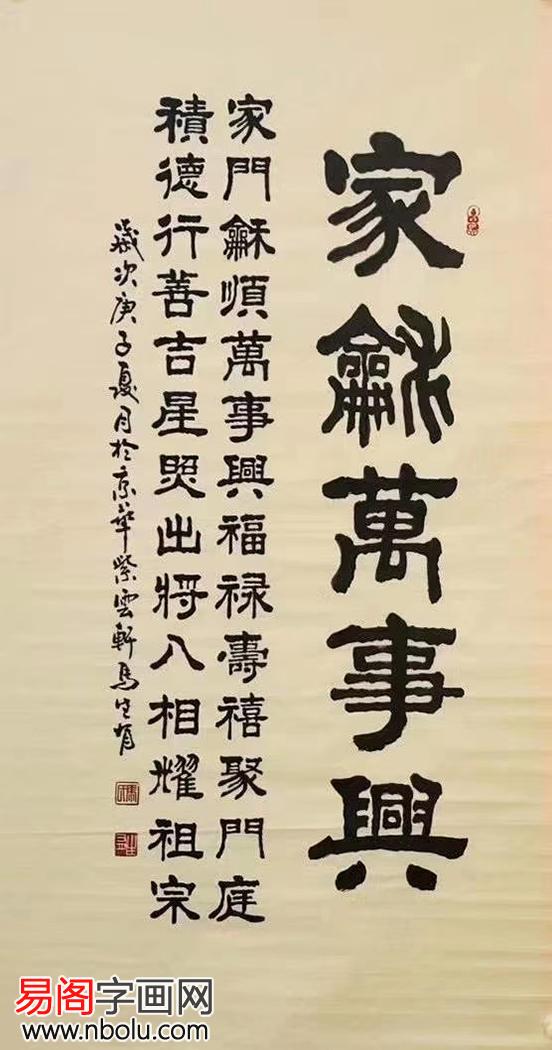 家龢萬事興
家門龢順萬事興福禄壽禧聚門庭
積德行善吉星照出将入相耀祖宗
歲次庚子夏月於京華紫雲軒馬生
易阁字画网
www.nbolu.com